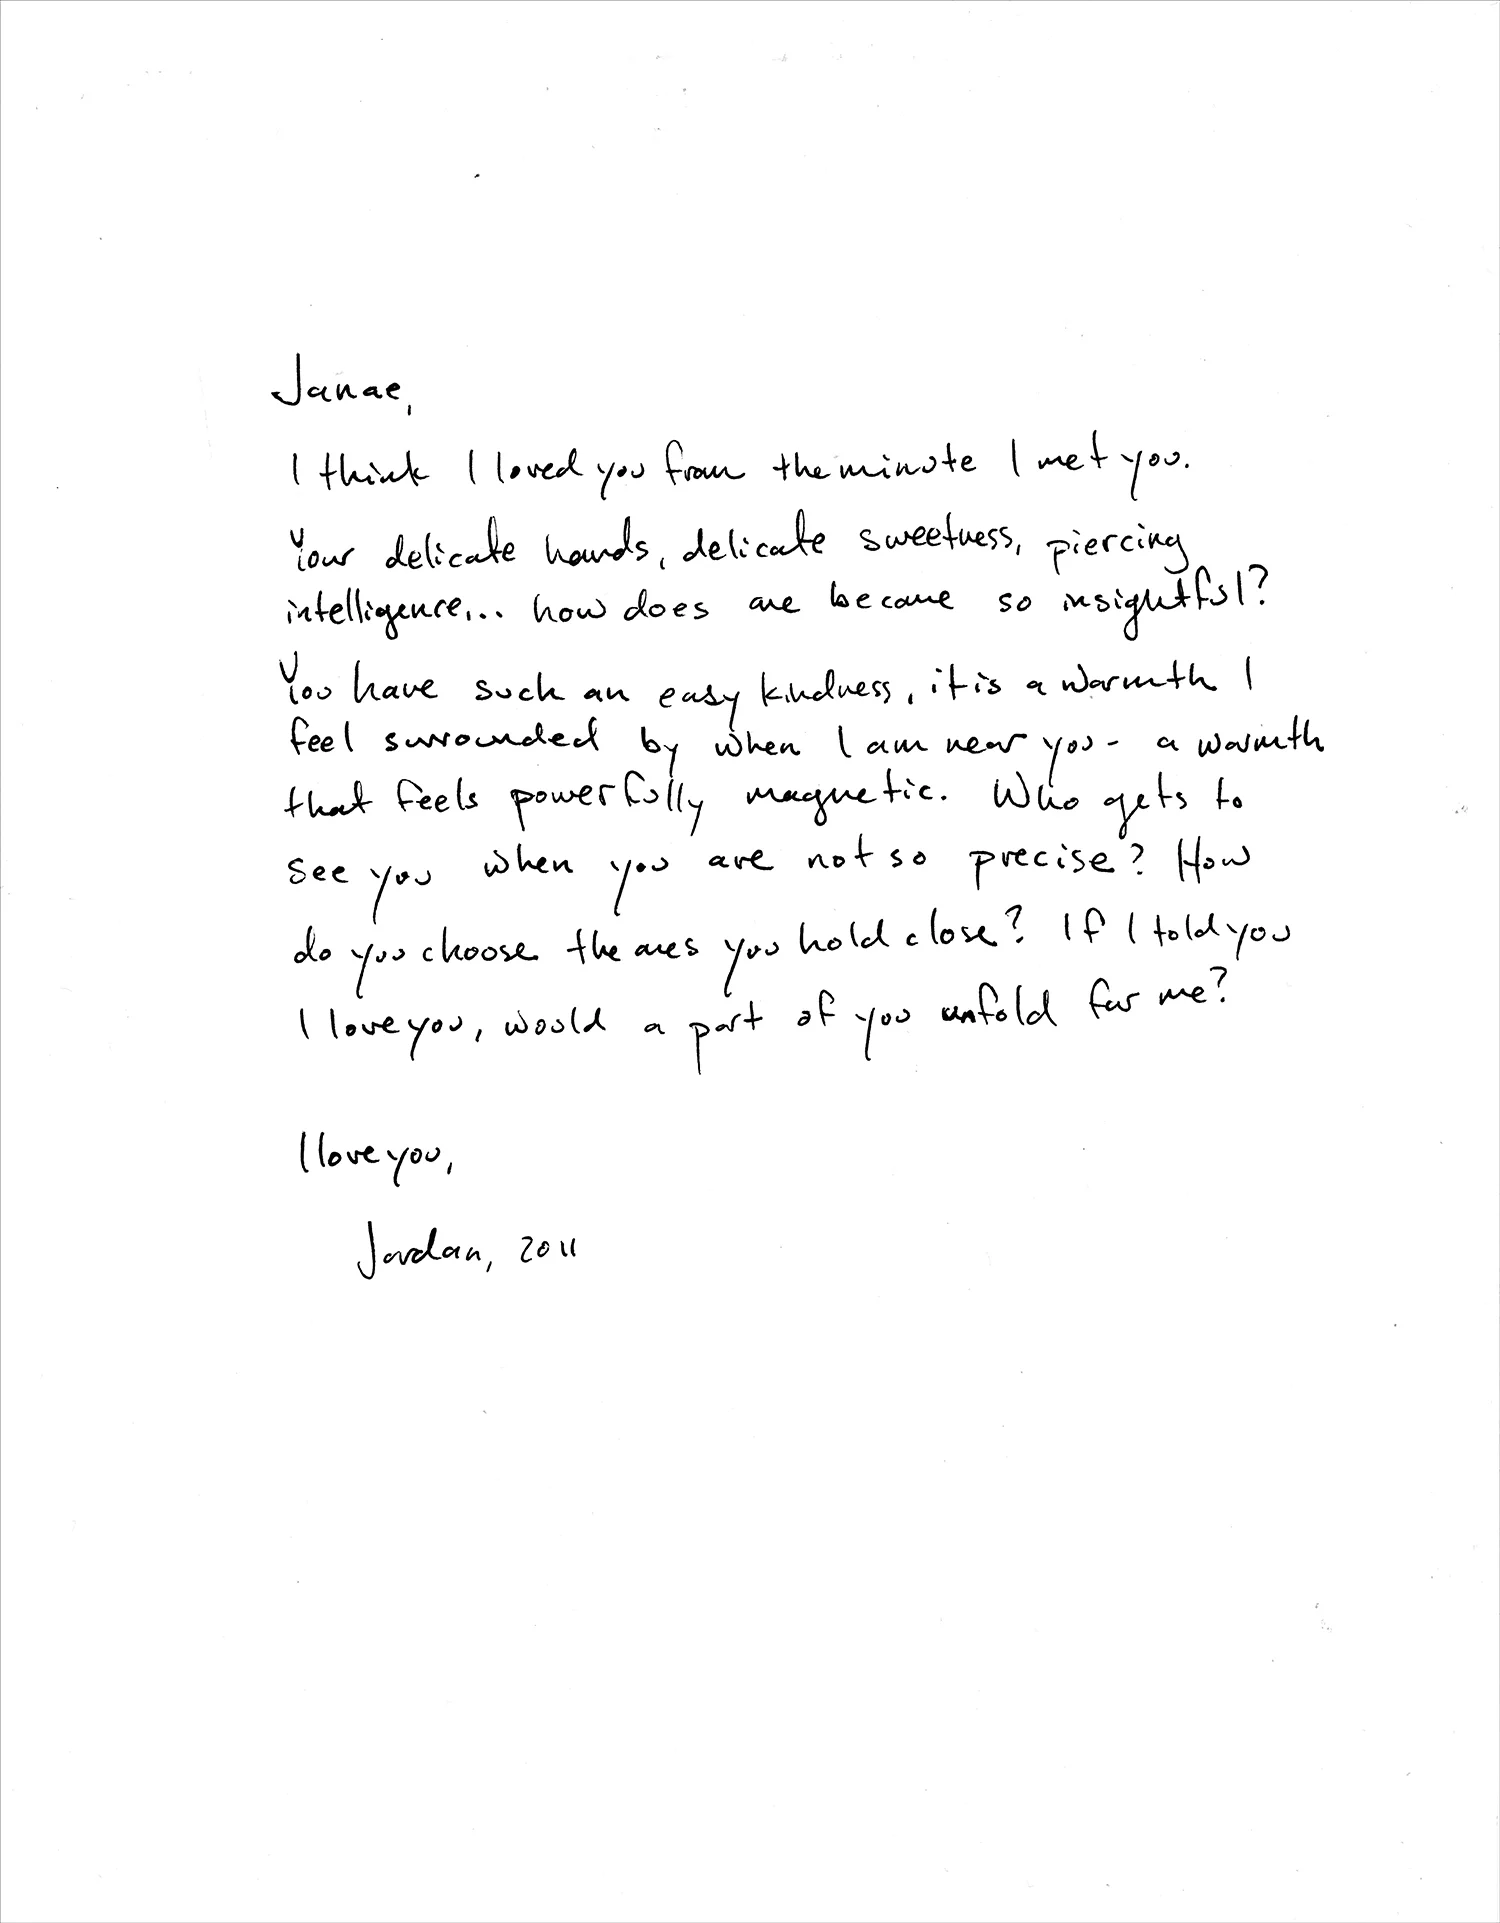 Janae,
I think I loved you from the minute I met you.
Your delicate hands, delicate sweetness, piercing
intelligence... how does one become so insightful?
You have such an easy kindness, it is a warmth I
feel surrounded by when I am near you - a warmth
that feels powerfully magnetic. Who gets to
see you when you are not so precise? How
do you choose the ones you hold close? If I told you
I love you, would a part of you unfold for me?
I love you,
Jordan, 2011